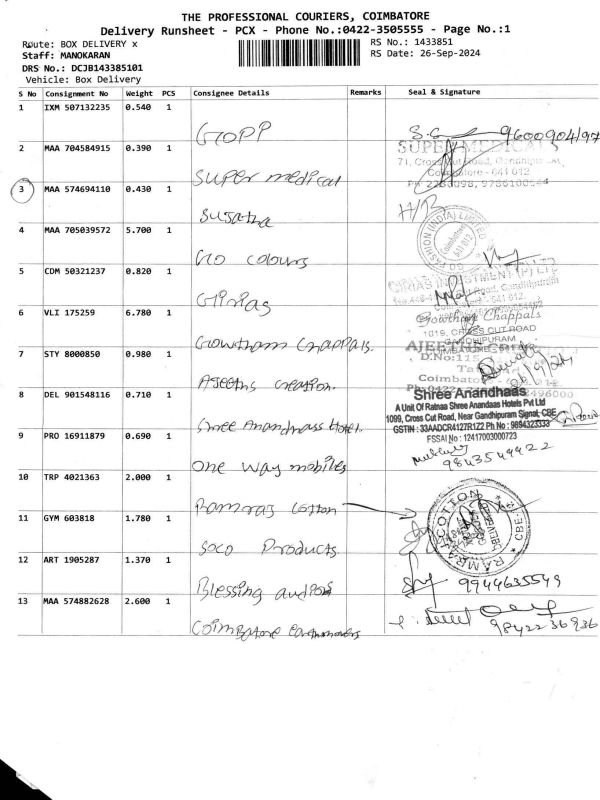 THE PROFESSIONAL COURIERS, COIMBATORE
Delivery Runsheet - PCX - Phone No.:0422-3505555 - Page No.:1
Route: BOX DELIVERY x
RS No.: 1433851
Staff: MANOKARAN
RS Date: 26-Sep-2024
DRS No.: DCJB143385101
Vehicle: Box Delivery
S No Consignment No Weight PCS Consignee Details Remarks Seal & Signature
1 IXM 507132235 0.540 1
9600904197
2 MAA 704584915 0.390 1 Super medical
SUPER MEDICALS
71, Cross Cut Road,
641 012
3 MAA 574694110 0.430 1
H/B
4 MAA 705039572 5.700 1 Go colours
GO FASHION (INDIA) LIMITED
Coimbatore
641 012
5 CDM 50321237 0.820 1
6 VLI 175259 6.780 1 Gowtham Chappals.
Gowtham Chappals
1019, CROSS CUT ROAD
GANDHIPURAM
7 STY 8000850 0.980 1 Ajeeths creation.
26/9/24
8 DEL 901548116 0.710 1 Shree Anandhass Hotel.
Shree Anandhaas
A Unit Of Ratnaa Shree Anandaas Hotels Pvt Ltd
1099, Cross Cut Road, Near Gandhipuram Signal, CBE
GSTIN : 33AADCR4127R1Z2 Ph No : 9894323333
FSSAI No : 12417003000723
9 PRO 16911879 0.690 1 One way mobiles
9843549922
10 TRP 4021363 2.000 1 Ramraj Cotton
RAMRAJ COTTON
CBE
11 GYM 603818 1.780 1 Soco Products
12 ART 1905287 1.370 1 Blessing
9944635549
13 MAA 574882628 2.600 1 Coimbatore
9842236936